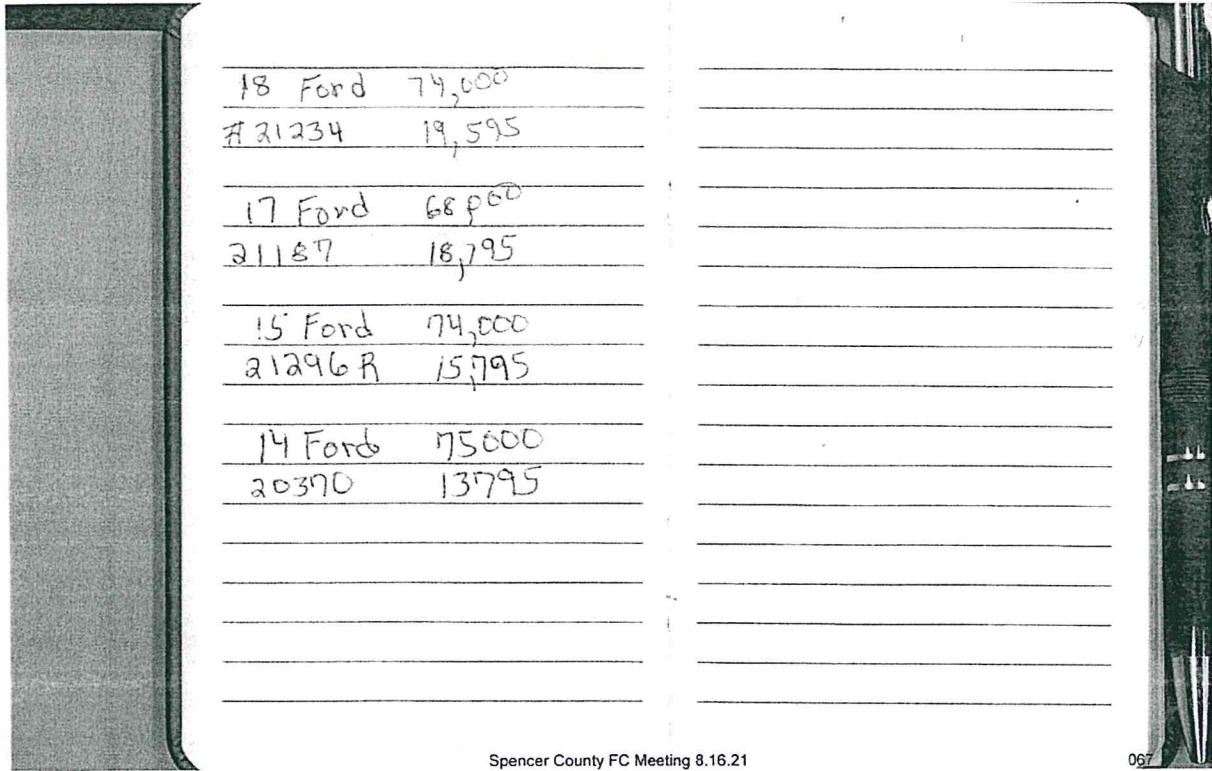 18 Ford 74,000
#21234 19,595
17 Ford 68,000
21187 18,795
15 Ford 74,000
21296 R 15,795
14 Ford 75000
20370 13795
Spencer County FC Meeting 8.16.21
067